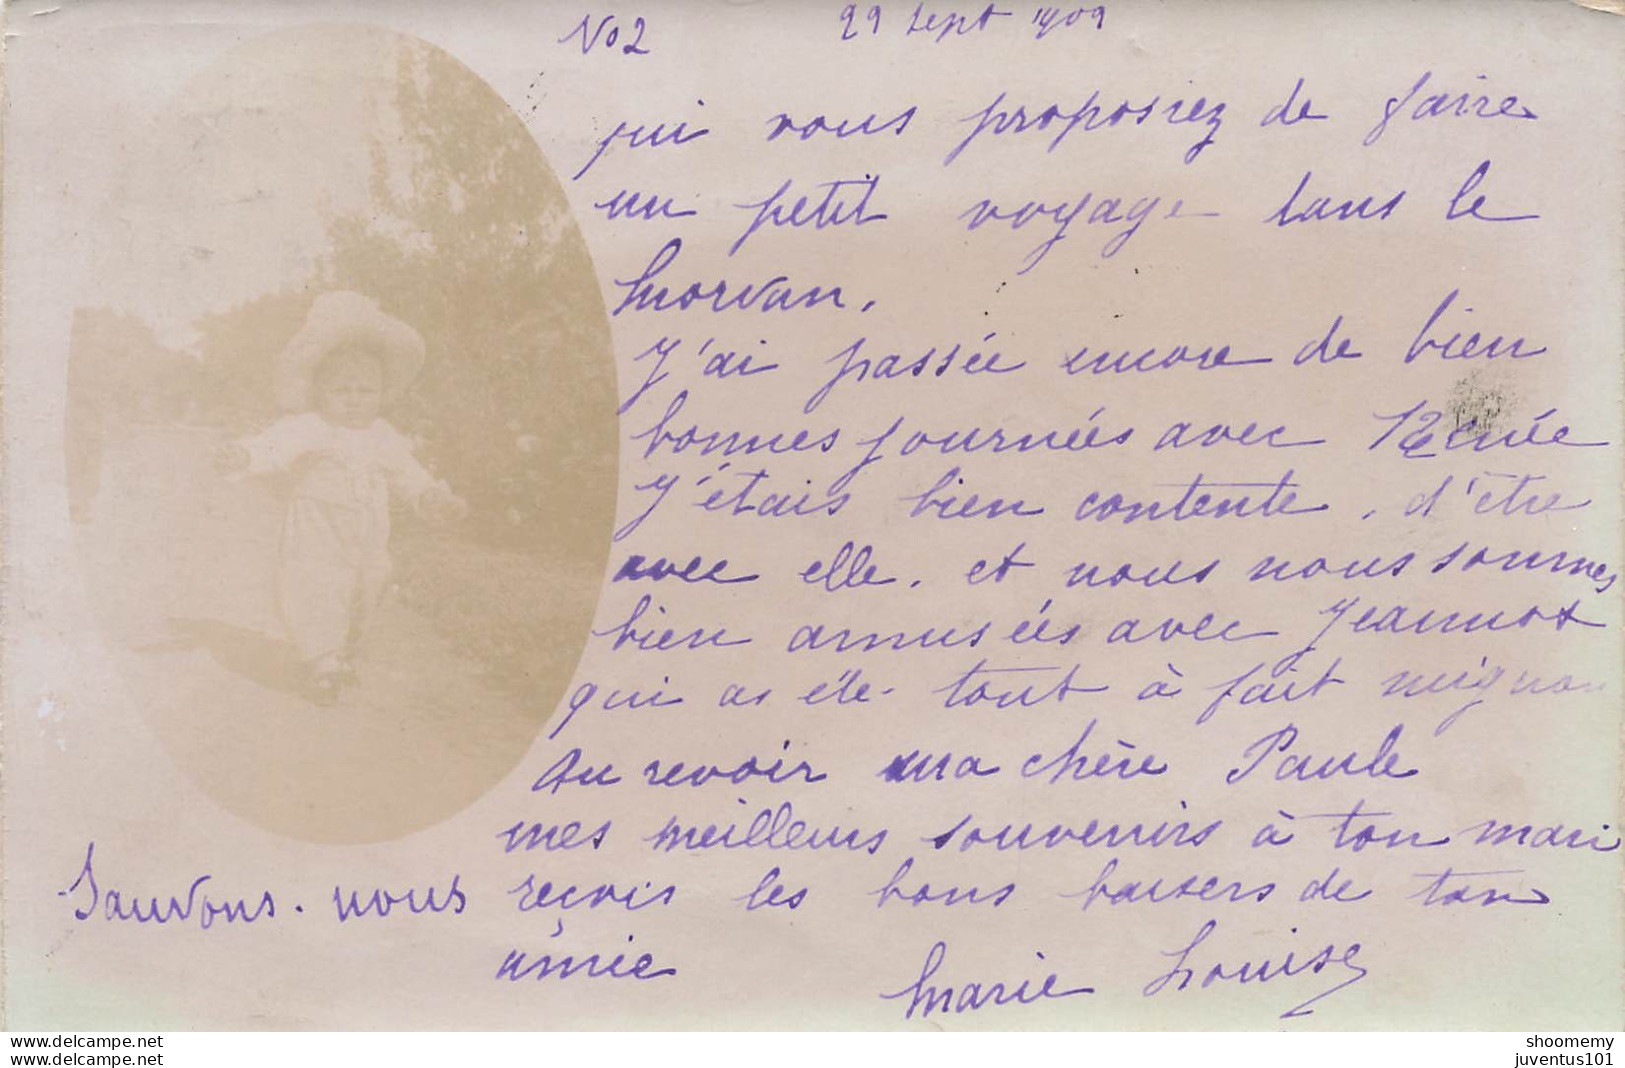 No 2 29 sept 1909
qui vous proposiez de faire
un petit voyage dans le
Morvan.
J'ai passée encore de bien
bonnes journées avec Renée
J'étais bien contente. d'être
avec elle. et nous nous sommes
bien amusées avec Jeannot
qui as été tout à fait mignon
Au revoir ma chère Paule
mes meilleurs souvenirs à ton mari
reçois les bons baisers de ton
amie
Marie Louise
Sauvons-nous
No stress, just share!
shoomemy
juventus101